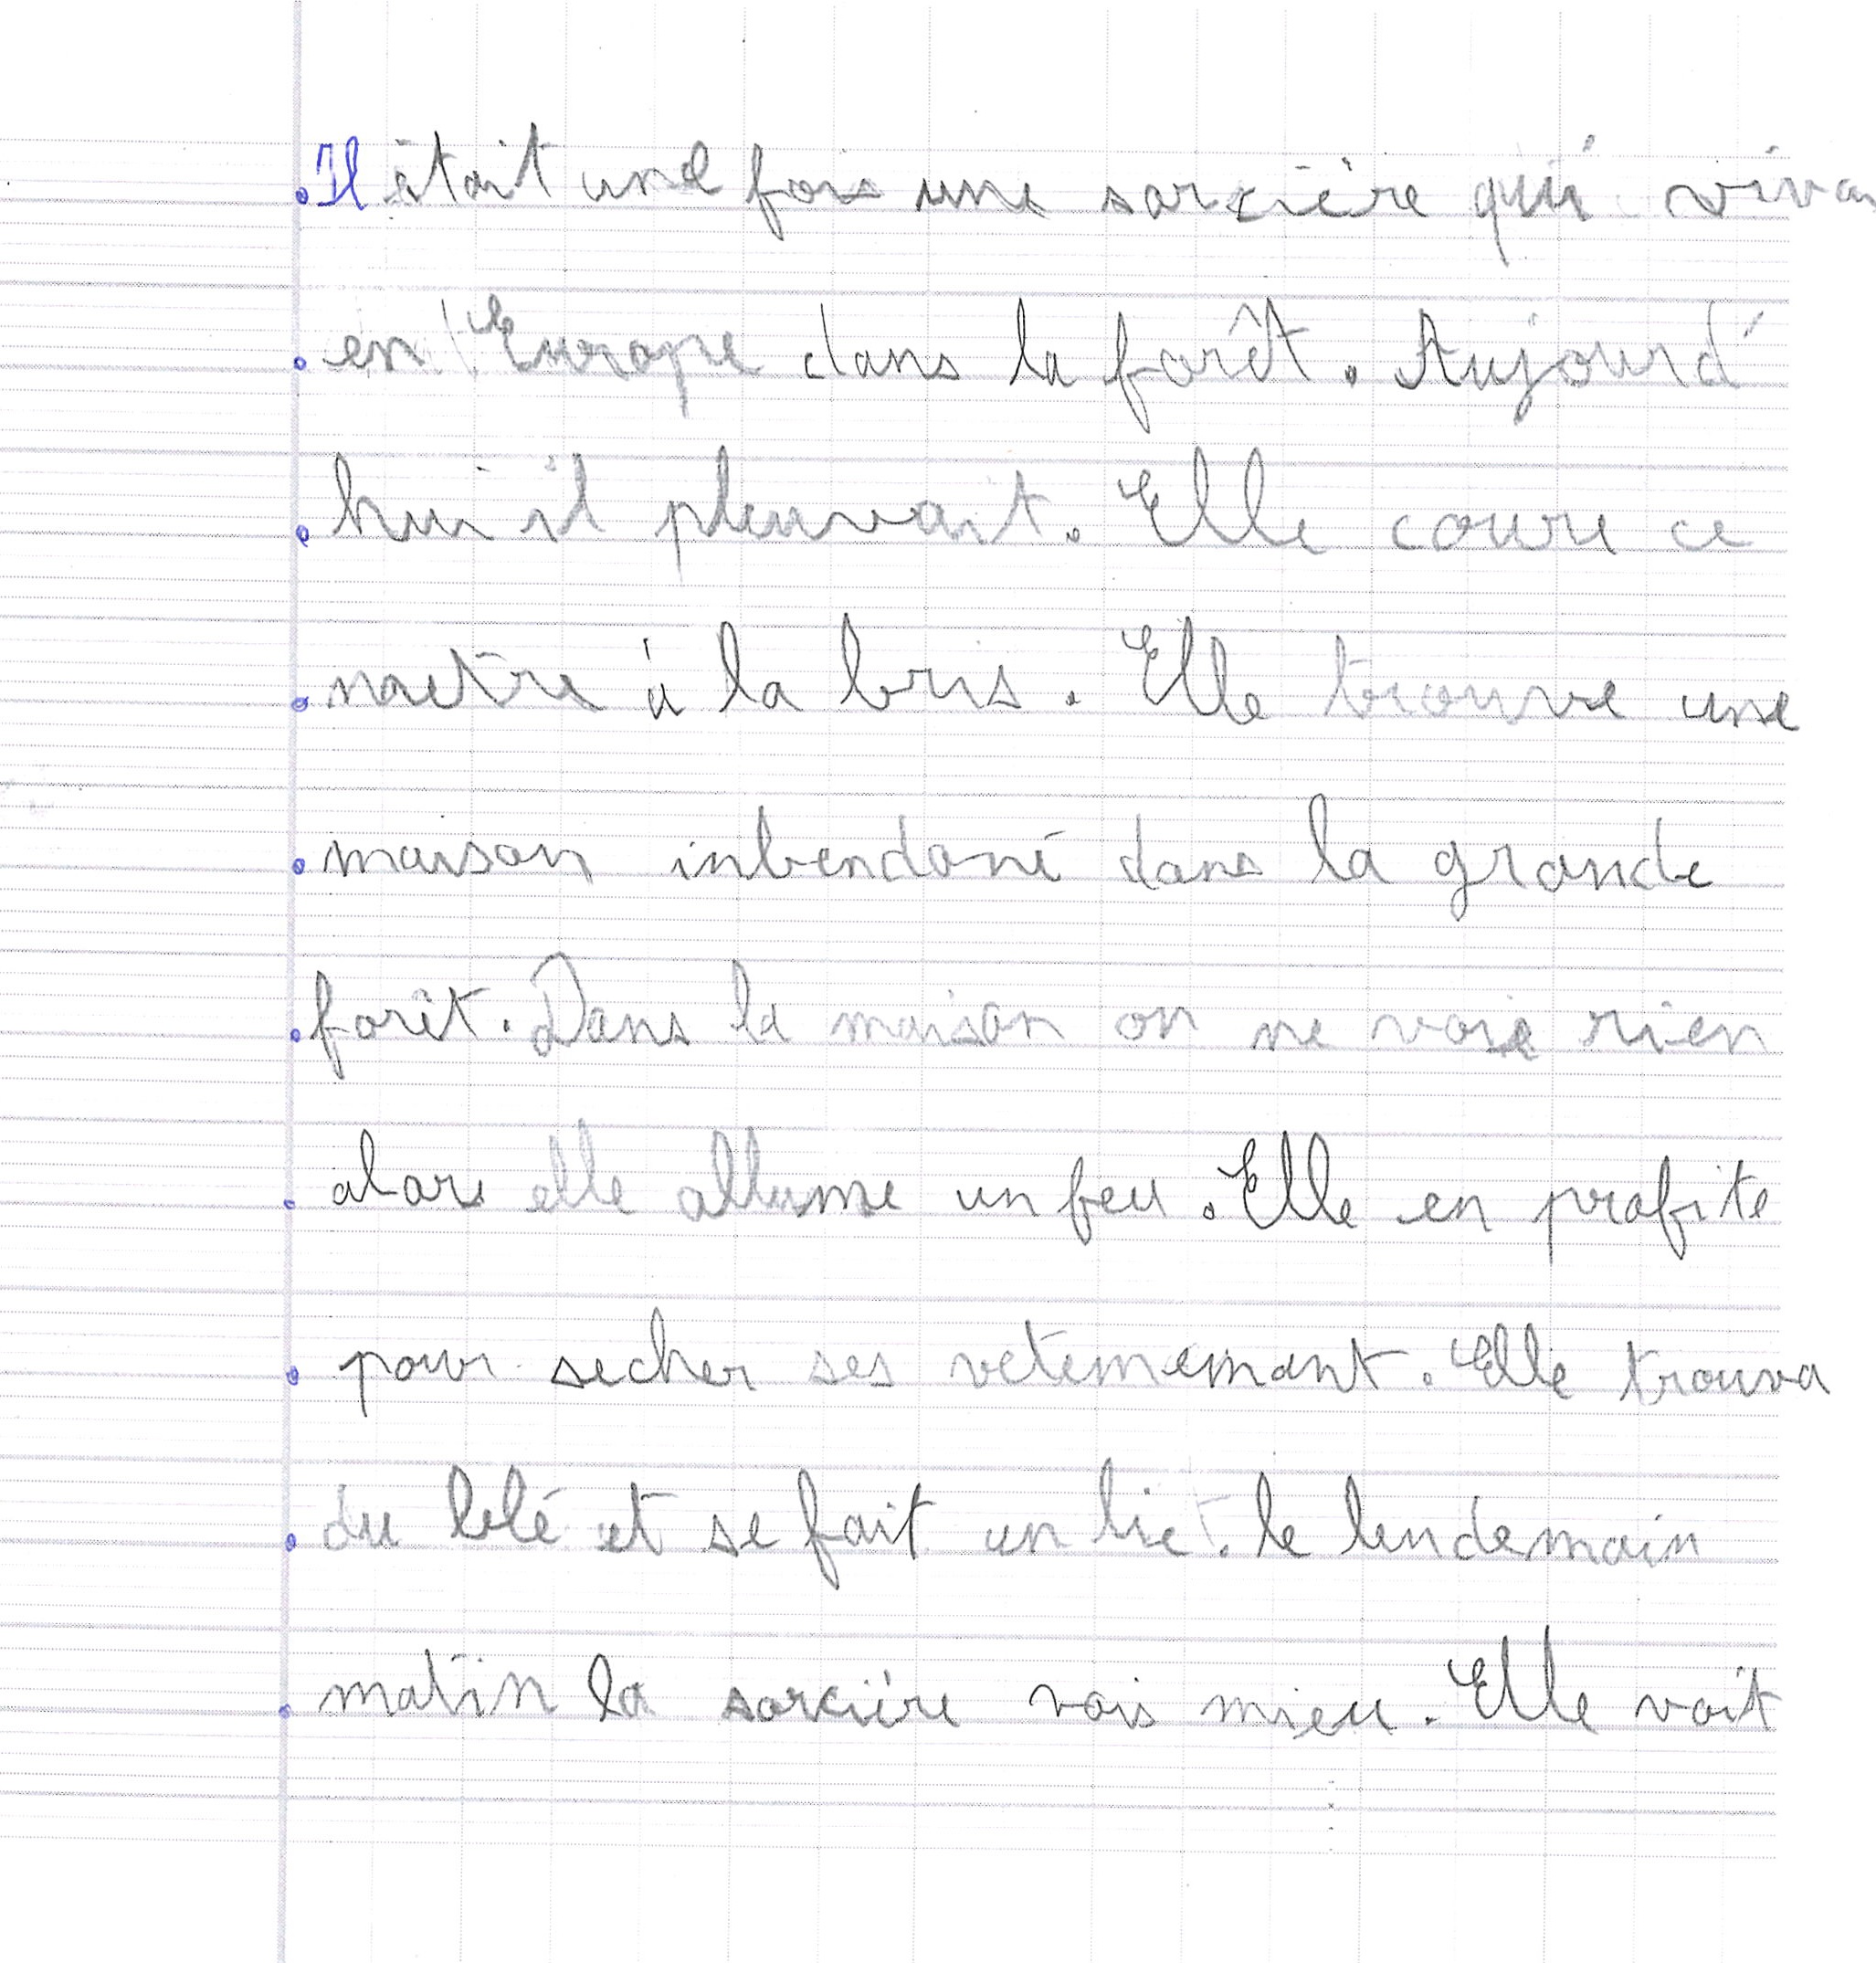 Il était une fois une sorcière qui vivai
en Europe dans la forêt. Aujourd'
hui il pleuvait. Elle coure ce
maetre à la bris. Elle trouve une
maison inbendoné dans la grande
forêt. Dans la maison on ne voie rien
alors elle allume un feu. Elle en profite
pour secher ses vetemement. Elle trouva
du blé et se fait un lit. le lendemain
matin la sorcière vais mieu. Elle voit